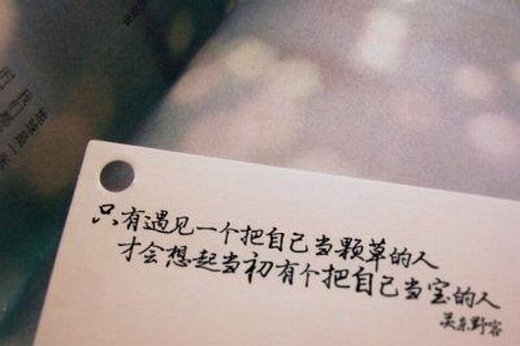 只有遇见一个把自己当颗草的人
才会想起当初有个把自己当宝的人
吴东野客